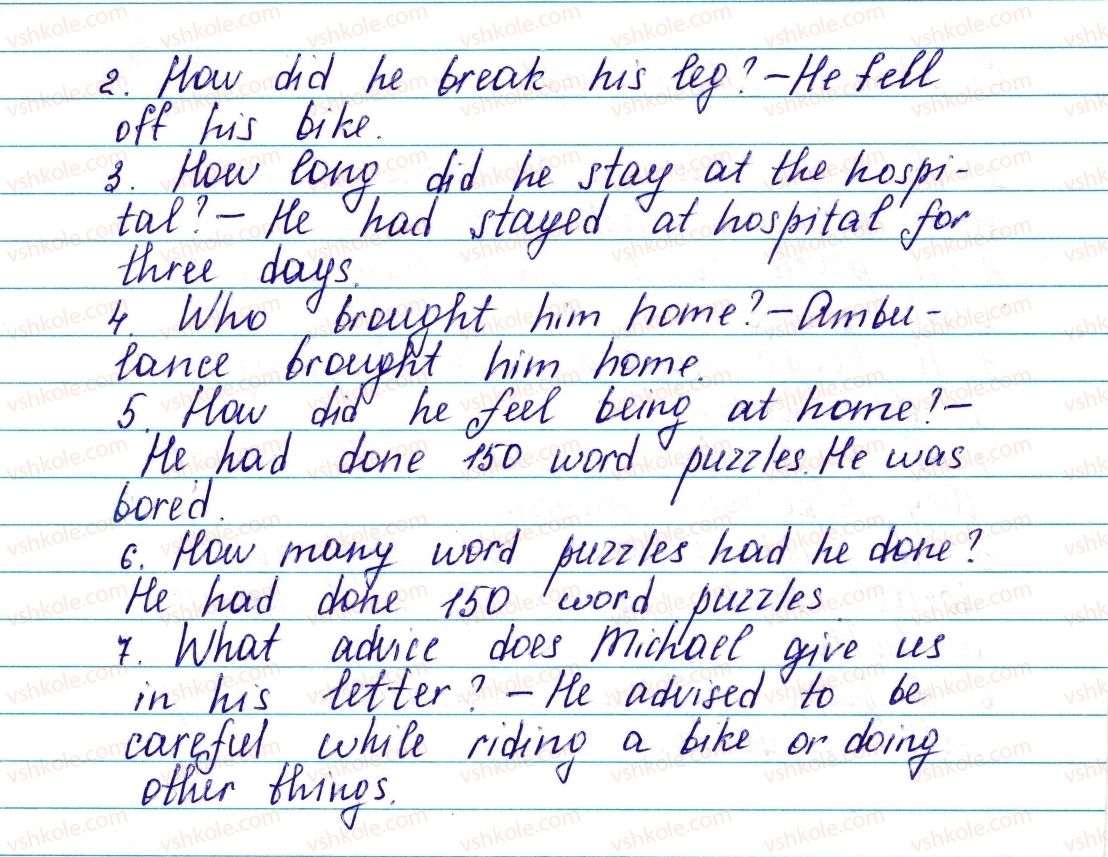 2. How did he break his leg? – He fell
off his bike.
3. How long did he stay at the hospi-
tal? – He had stayed at hospital for
three days.
4. Who brought him home? – Ambu-
lance brought him home.
5. How did he feel being at home? –
He had done 150 word puzzles. He was
bored.
6. How many word puzzles had he done?
He had done 150 word puzzles
7. What advice does Michael give us
in his letter? – He advised to be
careful while riding a bike or doing
other things.
vshkole.com